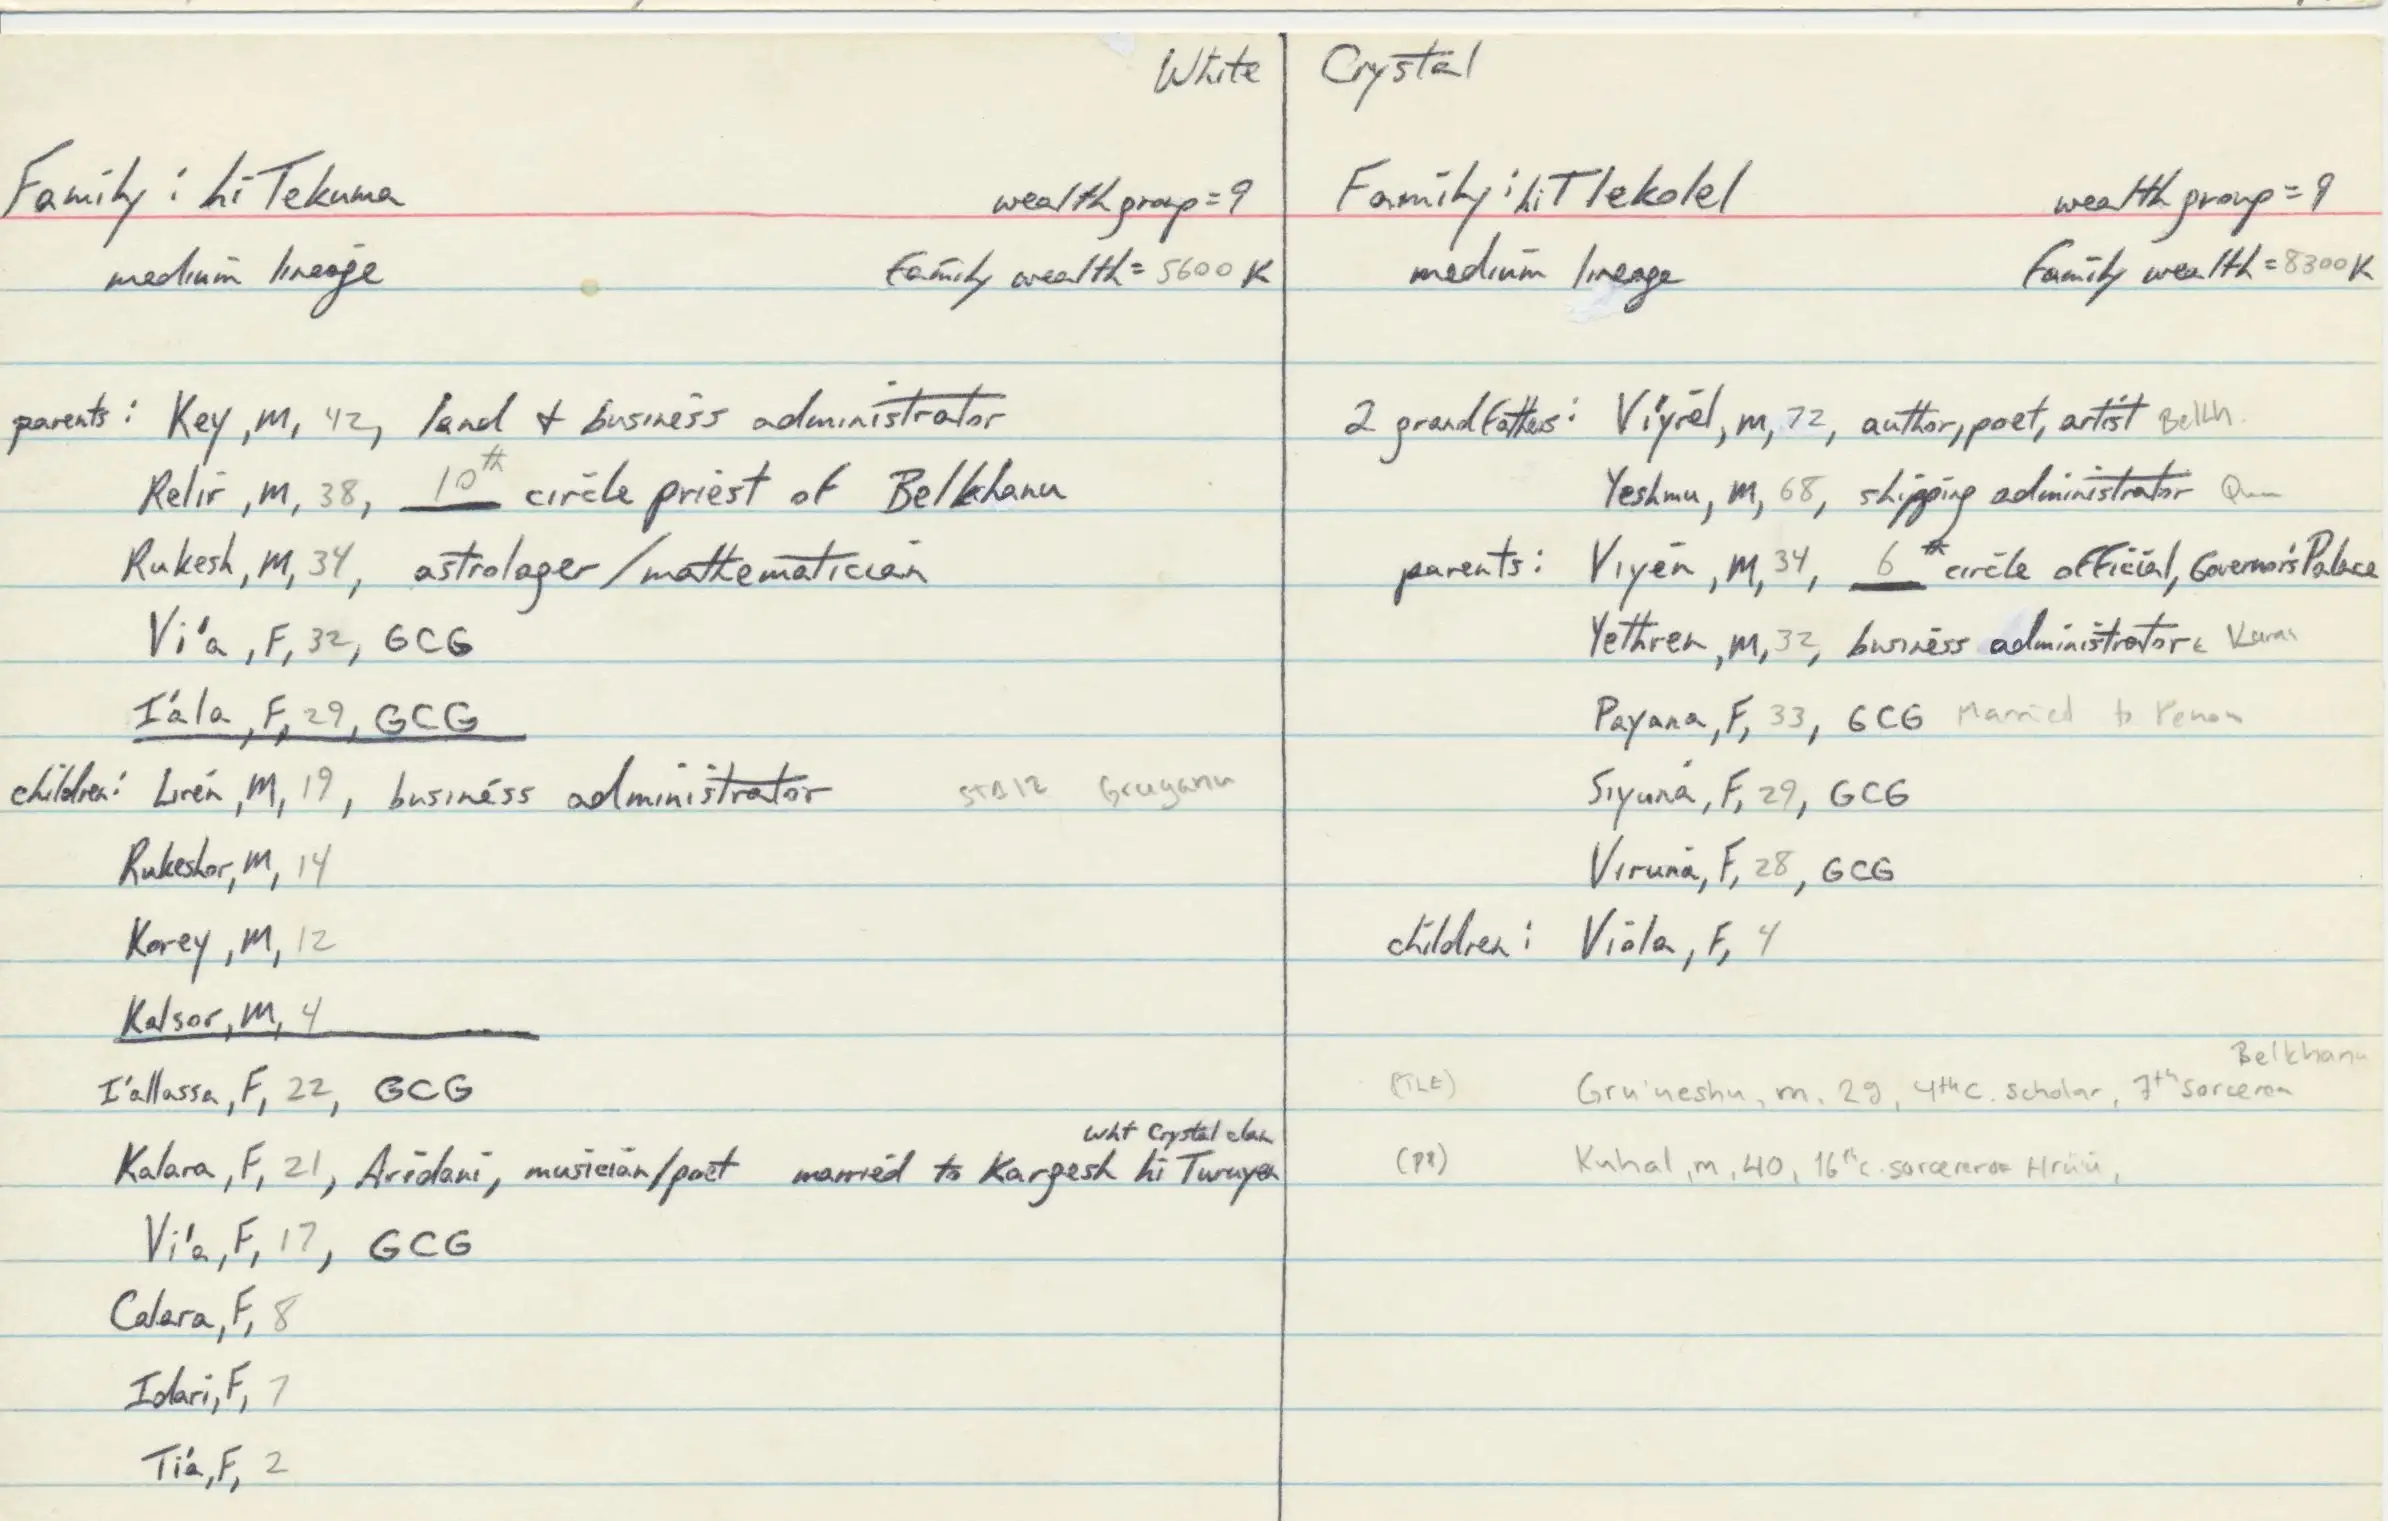 White
Family: hiTekuma
wealth group = 9
medium lineage
Family wealth = 5600 K
parents: Key, M, 42, land & business administrator
Relir, M, 38, 10th circle priest of Belkhanu
Rukesh, M, 34, astrologer/mathematician
Vi'a, F, 32, GCG
I'ala, F, 29, GCG
children: Liren, M, 19, business administrator Gruganu
Rukeshor, M, 14
Korey, M, 12
Kalsor, M, 4
I'allassa, F, 22, GCG
wht Crystal clan
Kalara, F, 21, Aridani, musician/poet married to Kargesh hi Turuyen
Vi'a, F, 17, GCG
Calara, F, 8
Idari, F, 7
Ti'a, F, 2
Crystal
Family: hiTlekolel
wealth group = 9
medium lineage
Family wealth = 8300 K
2 grandfathers: Viyrel, M, 72, author, poet, artist Belkh.
Yeshmu, M, 68, shipping administrator
parents: Viyen, M, 34, 6th circle official, Governor's Palace
Yethren, M, 32, business administrator
Payana, F, 33, GCG Married to
Siyuna, F, 29, GCG
Viruna, F, 28, GCG
children: Viola, F, 4
Belkhanu
(TLE) Gru'neshu, m, 29, 4th c. scholar, 7th
Kuhal, m, 40, 16th c. sorcerer of Hrüü,